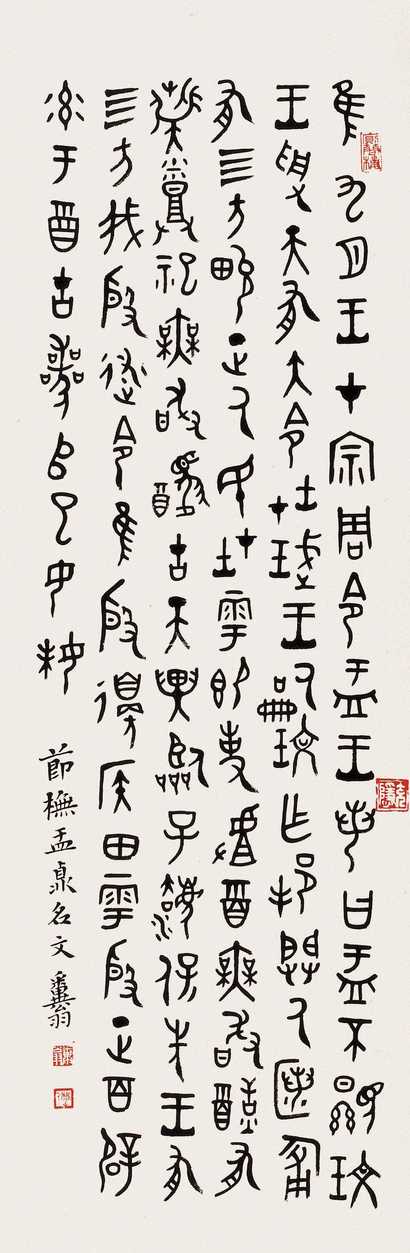 隹九月王才宗周令盂王若曰盂不顯玟
王受天有大令在珷王嗣玟乍邦闢氒匿匍
有亖方畯正氒民在雩御事酉無敢有
祀無敢古天異臨子灋保先王有
亖方我殷述令隹殷邊侯田雩殷正百辟
率于酉古喪𠂤巳
節橅盂鼎名文翁